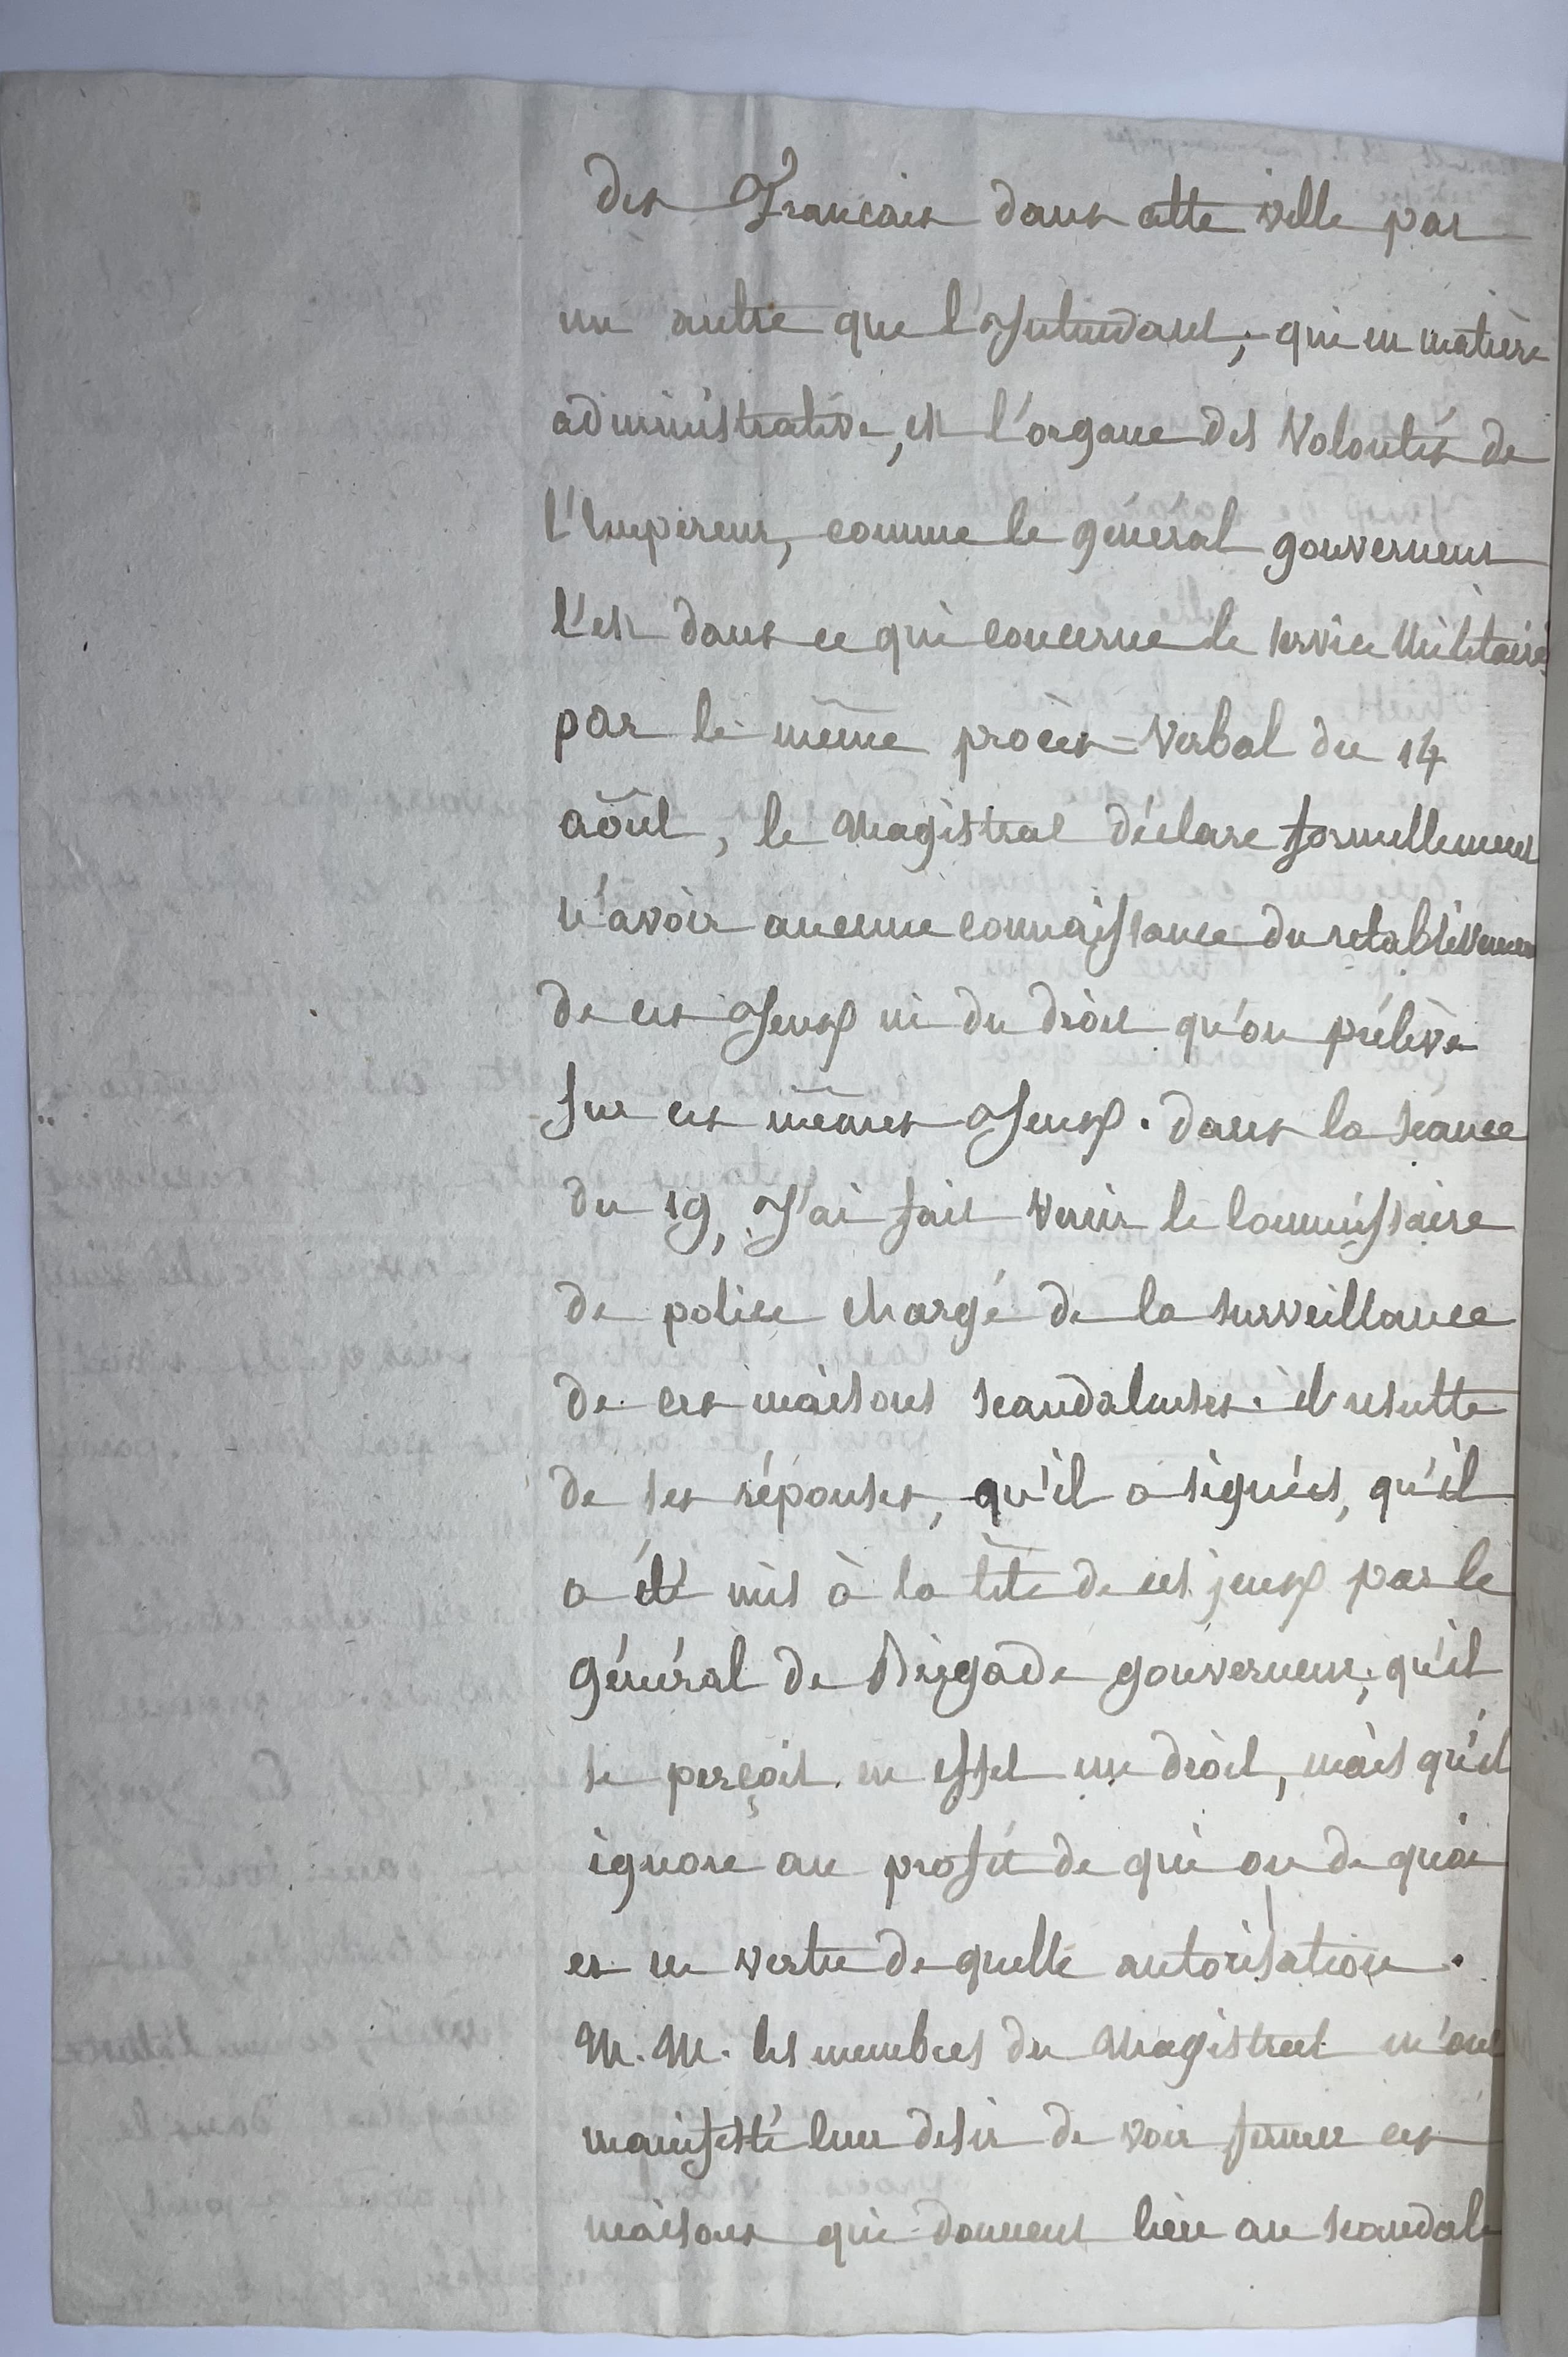 des Francais dans cette ville par
un autre que l'Intendant, qui en matière
administrative, est l'organe des Volontés de
l'Empereur, comme le général gouverneur
l'est dans ce qui concerne le service Militaire
par le même procès=Verbal du 14
août, le Magistrat déclare formellement
n'avoir aucune connaissance du retablissement
de ces Jeux ni du droit qu'on prélève
sur ces mêmes Jeux. dans la séance
du 19, J'ai fait venir le Commissaire
de police chargé de la surveillance
de ces maisons scandaleuses. il resulte
de ses réponses, qu'il a signées, qu'il
a été mis à la tête de ces jeux par le
Général de Brigade gouverneur, qu'il
se perçoit en effet un droit, mais qu'il
ignore au profit de qui ou de quoi
et en vertu de quelle autorisation.
M. M. les membres du Magistrat m'ont
manifesté leur desir de voir fermer ces
maisons qui donnent lieu au scandale